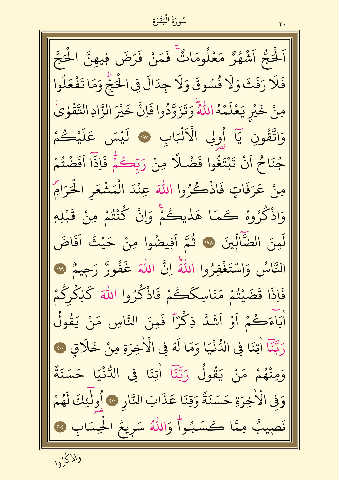 سُورَةُ الْبَقَرَةِ
٣٠
اَلْحَجُّ اَشْهُرٌ مَعْلُومَاتٌۚ فَمَنْ فَرَضَ فِيهِنَّ الْحَجَّ
فَلَا رَفَثَ وَلَا فُسُوقَ وَلَا جِدَالَ فِي الْحَجِّۜ وَمَا تَفْعَلُوا
مِنْ خَيْرٍ يَعْلَمْهُ اللّٰهُۜ وَتَزَوَّدُوا فَاِنَّ خَيْرَ الزَّادِ التَّقْوٰىۘ
وَاتَّقُونِ يَٓا اُو۬لِي الْاَلْبَابِ ﴿١٩٧﴾ لَيْسَ عَلَيْكُمْ
جُنَاحٌ اَنْ تَبْتَغُوا فَضْلًا مِنْ رَبِّكُمْۜ فَاِذَٓا اَفَضْتُمْ
مِنْ عَرَفَاتٍ فَاذْكُرُوا اللّٰهَ عِنْدَ الْمَشْعَرِ الْحَرَامِۖ
وَاذْكُرُوهُ كَمَا هَدٰيكُمْۚ وَاِنْ كُنْتُمْ مِنْ قَبْلِهٖ
لَمِنَ الضَّٓالّٖينَ ﴿١٩٨﴾ ثُمَّ اَفٖيضُوا مِنْ حَيْثُ اَفَاضَ
النَّاسُ وَاسْتَغْفِرُوا اللّٰهَۜ اِنَّ اللّٰهَ غَفُورٌ رَحٖيمٌ ﴿١٩٩﴾
فَاِذَا قَضَيْتُمْ مَنَاسِكَكُمْ فَاذْكُرُوا اللّٰهَ كَذِكْرِكُمْ
اٰبَٓاءَكُمْ اَوْ اَشَدَّ ذِكْرًاۜ فَمِنَ النَّاسِ مَنْ يَقُولُ
رَبَّنَٓا اٰتِنَا فِي الدُّنْيَا وَمَا لَهُ فِي الْاٰخِرَةِ مِنْ خَلَاقٍ ﴿٢٠٠﴾
وَمِنْهُمْ مَنْ يَقُولُ رَبَّنَٓا اٰتِنَا فِي الدُّنْيَا حَسَنَةً
وَفِي الْاٰخِرَةِ حَسَنَةً وَقِنَا عَذَابَ النَّارِ ﴿٢٠١﴾ اُو۬لٰٓئِكَ لَهُمْ
نَصٖيبٌ مِمَّا كَسَبُواۜ وَاللّٰهُ سَرٖيعُ الْحِسَابِ ﴿٢٠٢﴾
وَاذْكُرُوا